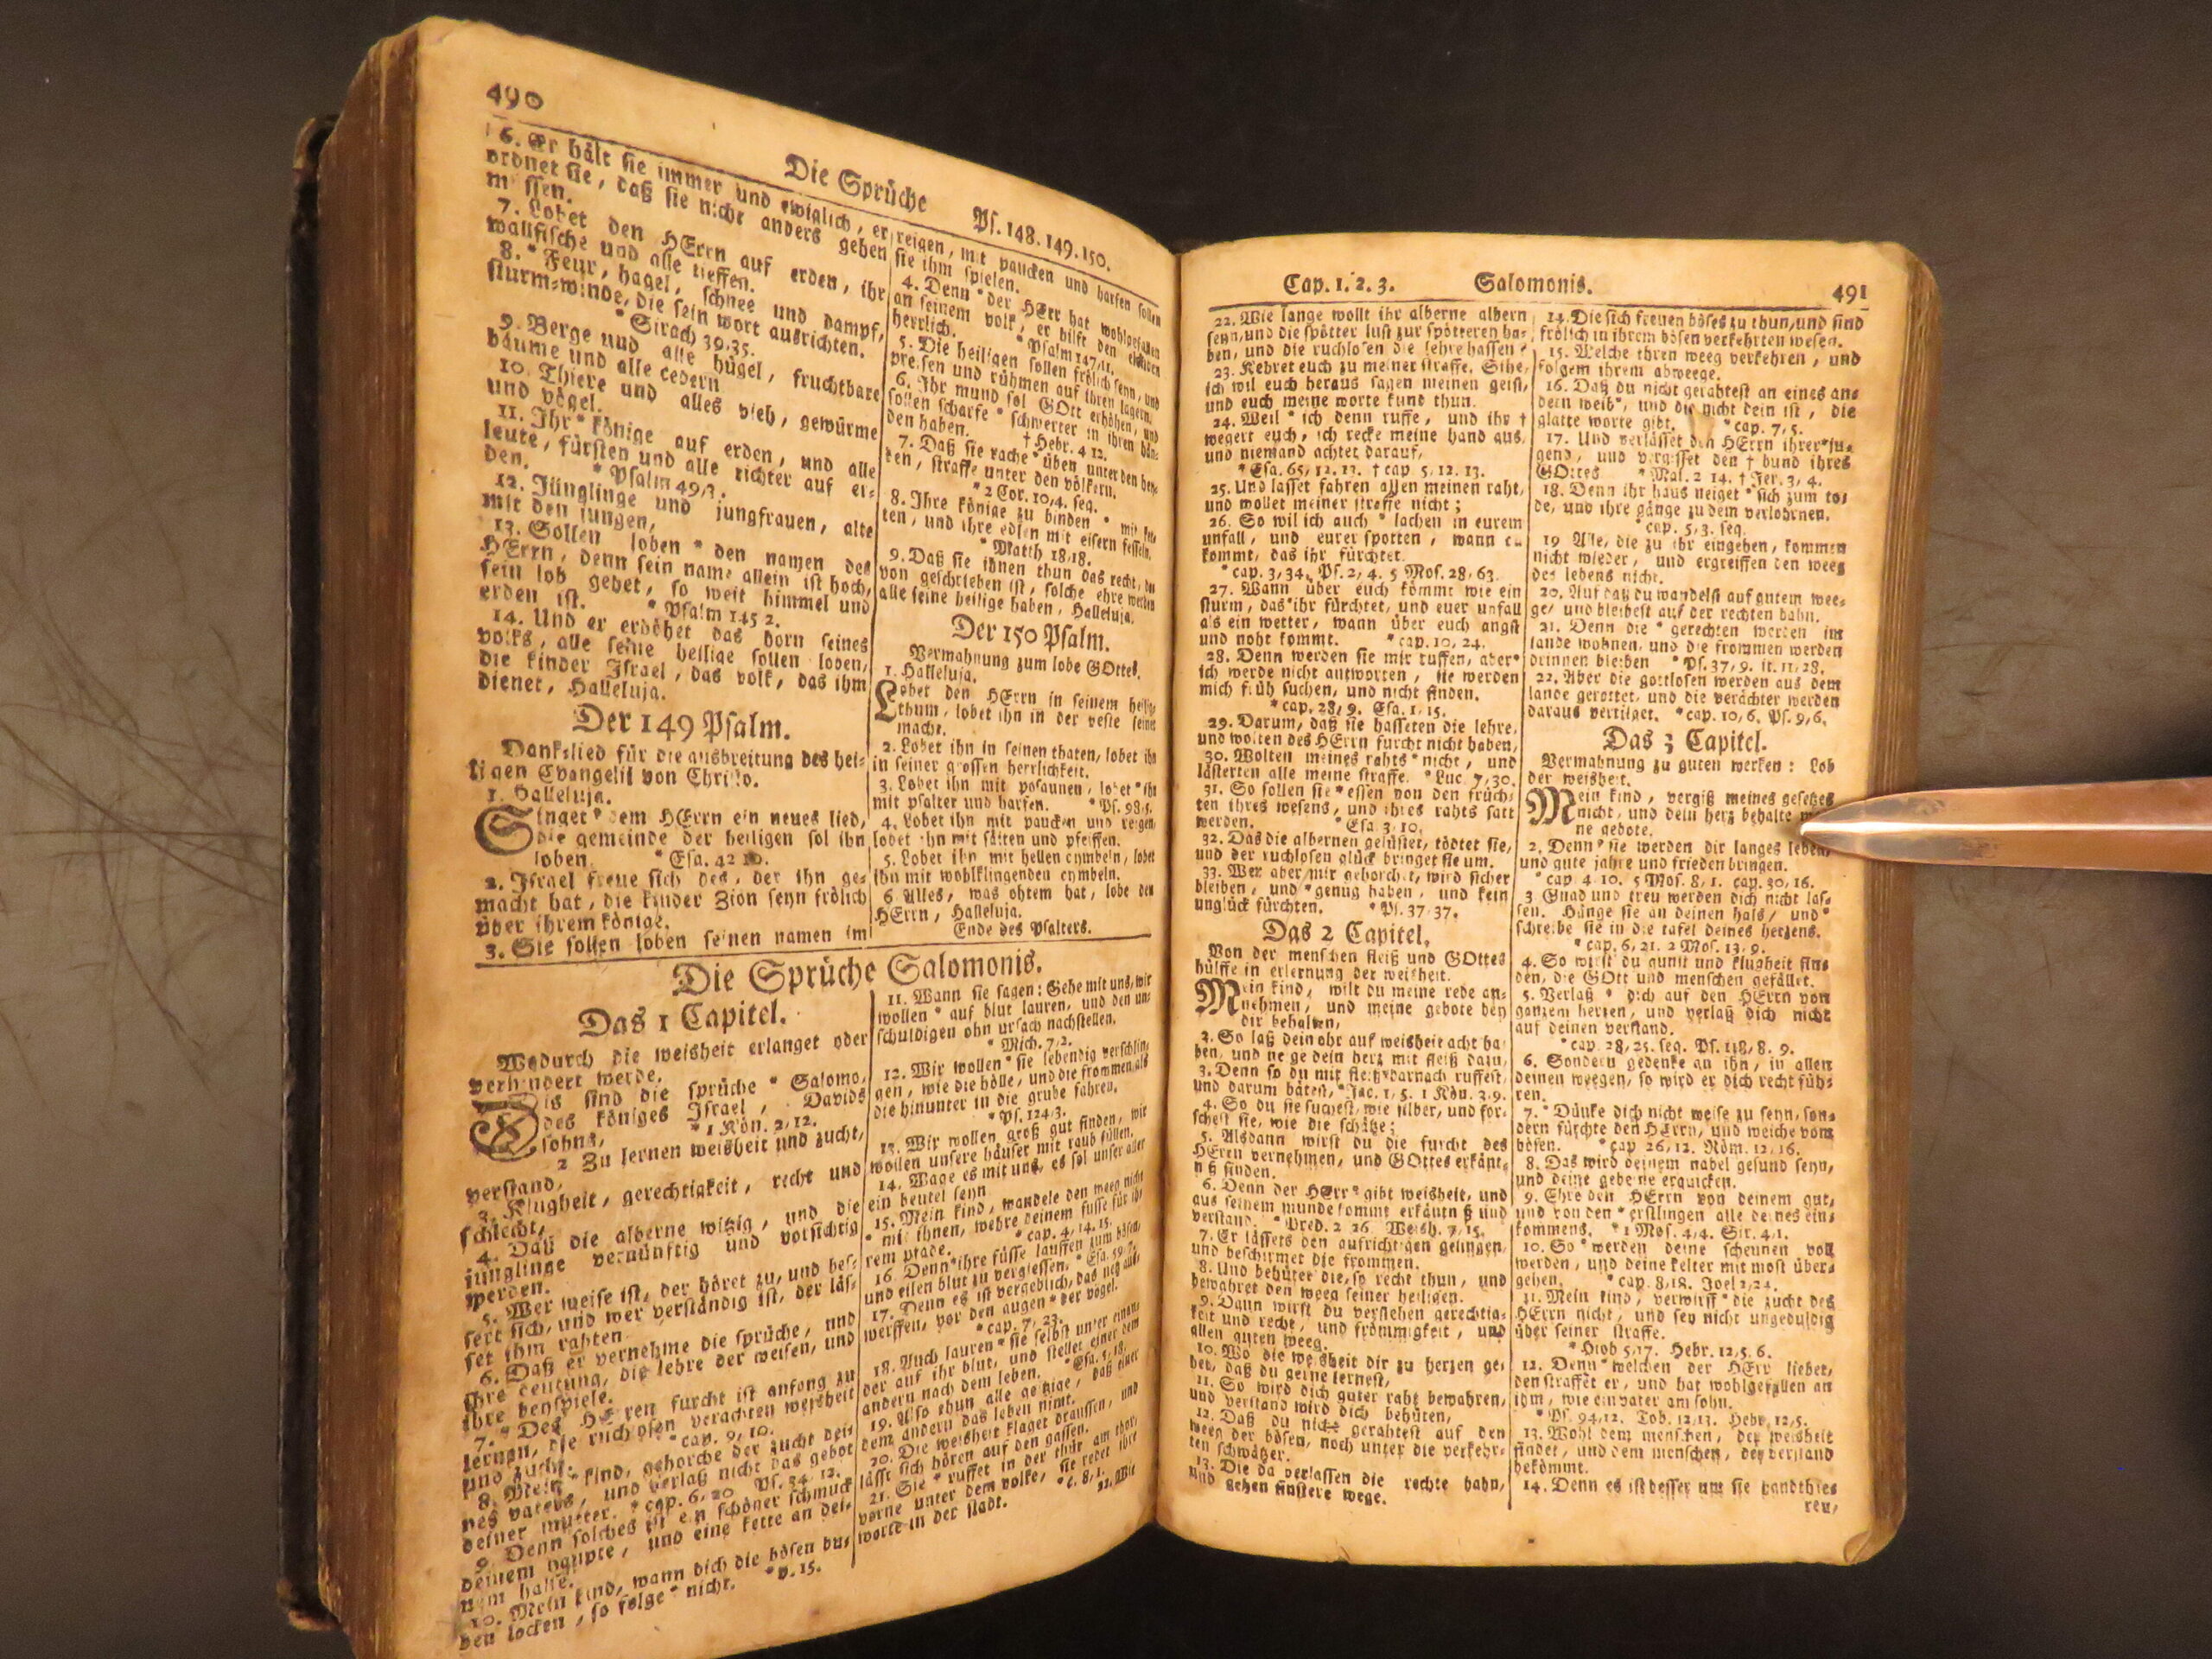 490
Die Sprüche
Ps. 148. 149. 150.
6. Er hält sie immer und ewiglich, er
ordnet sie, daß sie nicht anders gehen
müssen.
7. Lobet den HErrn auf erden, ihr
wallfische und alle tieffen.
8. * Feur, hagel, schnee und dampf,
sturm-winde, die sein wort ausrichten.
* Sirach 39,35.
9. Berge und alle hügel, fruchtbare
bäume und alle cedern
10. Thiere und alles vieh, gewürme
und vögel.
11. Ihr * könige auf erden, und alle
leute, fürsten und alle richter auf er-
den.
* Psalm 49/3.
12. Jünglinge und jungfrauen, alte
mit den jungen,
13. Sollen loben * den namen des
HErrn, denn sein name allein ist hoch,
sein lob gehet, so weit himmel und
erden ist.
* Psalm 145 2.
14. Und er erhöhet das horn seines
volks, alle seine heilige sollen loben,
die kinder Israel, das volk, das ihm
dienet, Halleluja.
Der 149 Psalm.
Danklied für die ausbreitung des hei-
ligen Evangelii von Christo.
1. Halleluja.
Singet * dem HErrn ein neues lied,
die gemeinde der heiligen sol ihn
loben
* Esa. 42 10.
2. Israel freue sich des, der ihn ge-
macht hat, die kinder Zion seyn frölich
über ihrem könige.
3. Sie sollen loben seinen namen im
reigen, mit paucken und harfen sollen
sie ihm spielen.
4. Denn * der HErr hat wohlgefallen
an seinem volk, er hilft den elenden
herrlich.
* Psalm 147,11.
5. Die heiligen sollen frölich seyn, und
preisen und rühmen auf ihren lagern.
6. Ihr mund sol GOtt erhöhen, und
sollen scharfe * schwerter in ihren hän-
den haben.
† Hebr. 4 12.
7. Daß sie rache * üben unter den hey-
den, straffe unter den völkern.
* 2 Cor. 10,4. seq.
8. Ihre könige zu binden * mit ket-
ten, und ihre edlen mit eisern fesseln.
* Matth 18,18.
9. Daß sie ihnen thun das recht, da
von geschrieben ist, solche ehre werden
alle seine heilige haben, Halleluja.
Der 150 Psalm.
Vermahnung zum lobe GOttes.
1. Halleluja.
Lobet den HErrn in seinem heilig-
thum, lobet ihn in der veste seiner
macht.
2. Lobet ihn in seinen thaten, lobet ihn
in seiner grossen herrlichkeit.
3. Lobet ihn mit posaunen, lobet * ihn
mit psalter und harfen.
* Ps. 98,5.
4. Lobet ihn mit paucken und reigen,
lobet ihn mit säiten und pfeiffen.
5. Lobet ihn mit hellen cymbeln, lobet
ihn mit wohlklingenden cymbeln.
6 Alles, was ohtem hat, lobe den
HErrn, Halleluja.
Ende des Psalters.
Die Sprüche Salomonis.
Das 1 Capitel.
Wodurch die weisheit erlanget oder
verhindert werde.
Dis sind die sprüche * Salomo,
des königes Israel, Davids
sohns,
* 1 Kön. 2,12.
2 Zu lernen weisheit und zucht,
verstand,
3. Klugheit, gerechtigkeit, recht und
schlecht,
4. Daß die alberne witzig, und die
jünglinge vernünftig und vorsichtig
werden.
5. Wer weise ist, der höret zu, und bes-
sert sich, und wer verständig ist, der läs-
set ihm rahten.
6. Daß er vernehme die sprüche, und
ihre deutung, die lehre der weisen, und
ihre beyspiele.
7. * Des HErren furcht ist anfang zu
lernen, die ruchlosen verachten weisheit
und zucht.
* cap. 9, 10.
8. Mein * kind, gehorche der zucht dei-
nes vaters, und verlaß nicht das gebot
deiner mutter.
* cap. 6, 20 Ps. 34, 12.
9. Denn solches ist ein schöner schmuck
deinem häupte, und eine kette an dei-
nem halse.
10. Mein kind, wann dich die bösen bu-
ben locken, so folge * nicht.
* v. 15.
11. Wann sie sagen: Gehe mit uns, wir
wollen * auf blut lauren, und den un-
schuldigen ohn ursach nachstellen.
* Mich. 7,2.
12. Wir wollen * sie lebendig verschlin-
gen, wie die hölle, und die frommen als
die hinunter in die grube fahren.
* Ps. 124/3.
13. Wir wollen groß gut finden, wir
wollen unsere häuser mit raub füllen.
14. Wage es mit uns, es sol unser aller
ein beutel seyn
15. Mein kind, wandele den weeg nicht
* mit ihnen, wehre deinem fusse für ih-
rem pfade.
* cap. 4, 14. 15.
16. Denn * ihre füsse lauffen zum bösen,
und eilen blut zu vergiessen.
* Esa. 59,7.
17. Denn es ist vergeblich, das netz aus-
werffen, vor den augen * der vögel.
* cap. 7, 23.
18. Auch lauren * sie selbst unter einan-
der auf ihr blut, und stellet einer dem
andern nach dem leben.
* Esa. 5,18.
19. Also thun alle geitzige, daß einer
dem andern das leben nimt.
20. Die weisheit klaget draussen, und
lässt sich hören auf den gassen.
21. Sie * ruffet in der thür am thor,
vorne unter dem volke, sie redet ihre
worte in der stadt.
* c. 8, 1.
22. Wie
Cap. 1. 2. 3.
Salomonis.
491
22. Wie lange wollt ihr alberne albern
seyn, und die spötter lust zur spötterey ha-
ben, und die ruchlosen die lehre hassen?
23. Kehret euch zu meiner straffe. Sihe,
ich wil euch heraus sagen meinen geist,
und euch meine worte kund thun.
24. Weil * ich denn ruffe, und ihr †
wegert euch, ich recke meine hand aus,
und niemand achtet darauf,
* Esa. 65, 12. 13. † cap. 5, 12. 13.
25. Und lasset fahren allen meinen raht,
und wollet meiner straffe nicht;
26. So wil ich auch * lachen in eurem
unfall, und eurer spotten, wann da
kommt, das ihr fürchtet.
* cap. 3/34. Ps. 2, 4. 5 Mos. 28, 63.
27. Wann über euch kömmt wie ein
sturm, das ihr fürchtet, und euer unfall
als ein wetter, wann über euch angst
und noht kommt.
* cap. 10, 24.
28. Denn werden sie mir ruffen, aber *
ich werde nicht antworten, sie werden
mich früh suchen, und nicht finden.
* cap. 28, 9. Esa. 1, 15.
29. Darum, daß sie hasseten die lehre,
und wolten des HErrn furcht nicht haben,
30. Wolten meines rahts * nicht, und
lästerten alle meine straffe. * Luc. 7, 30.
31. So sollen sie * essen von den früch-
ten ihres wesens, und ihres rahts satt
werden.
* Esa. 3, 10.
32. Das die albernen gelüstet, tödtet sie,
und der ruchlosen glück bringet sie um.
33. Wer aber mir gehorchet, wird sicher
bleiben, und * genug haben, und kein
unglück fürchten.
* Ps. 37, 37.
Das 2 Capitel.
Von der menschen fleiß und GOttes
hülffe in erlernung der weisheit.
Mein kind, wilt du meine rede an-
nehmen, und meine gebote bey
dir behalten,
2. So laß dein ohr auf weisheit acht ha-
ben, und neige dein herz mit fleiß dazu,
3. Denn so du mit fleiß * darnach ruffest,
und darum bätest, * Jac. 1, 5. 1 Kön. 3,9.
4. So du sie suchest, wie silber, und for-
schest sie, wie die schätze;
5. Alsdann wirst du die furcht des
HErrn vernehmen, und GOttes erkänt-
niß finden.
6. Denn der HErr * gibt weisheit, und
aus seinem munde kommt erkäntniß und
verstand.
* Pred. 2 26. Weish. 7, 15.
7. Er lässets den aufrichtigen gelingen,
und beschirmet die frommen.
8. Und behütet die, so recht thun, und
bewahret den weeg seiner heiligen.
9. Dann wirst du verstehen gerechtig-
keit und recht, und frömmigkeit, und
allen guten weeg.
10. Wo die weisheit dir zu herzen ge-
het, daß du gerne lernest,
11. So wird dich guter raht bewahren,
und verstand wird dich behüten,
12. Daß du nicht gerahtest auf den
weeg der bösen, noch unter die verkehr-
ten schwätzer.
13. Die da verlassen die rechte bahn,
und gehen finstere wege.
14. Die sich freuen böses zu thun, und sind
frölich in ihrem bösen verkehrten wesen.
15. Welche ihren weeg verkehren, und
folgem ihrem abweege.
16. Daß du nicht gerahtest an eines an-
dern weib *, und die nicht dein ist, die
glatte worte gibt.
* cap. 7, 5.
17. Und verlässet den HErrn ihrer * ju-
gend, und vergisset den † bund ihres
GOttes
* Mal. 2 14. † Jer. 3, 4.
18. Denn ihr haus neiget * sich zum to-
de, und ihre gänge zu dem verlohrnen.
* cap. 5, 3. seq.
19 Alle, die zu ihr eingehen, kommen
nicht wieder, und ergreiffen den weeg
des lebens nicht.
20. Auf daß du wandelst auf gutem wee-
ge, und bleibest auf der rechten bahn.
21. Denn die * gerechten werden im
lande wohnen, und die frommen werden
drinnen bleiben
* Ps. 37, 9. it. 11, 28.
22. Aber die gottlosen werden aus dem
lande gerottet, und die verächter werden
daraus vertilget. * cap. 10, 6. Ps. 9,6.
Das 3 Capitel.
Vermahnung zu guten werken: Lob
der weisheit.
Mein kind, vergiß meines gesetzes
nicht, und dein herz behalte
ne gebote.
2. Denn * sie werden dir langes leben,
und gute jahre und frieden bringen.
* cap. 4 10. 5 Mos. 8, 1. cap. 30, 16.
3 Gnad und treu werden dich nicht las-
sen. Hänge sie an deinen hals, und *
schreibe sie in die tafel deines herzens.
* cap. 6, 21. 2 Mos. 13, 9.
4. So wirst du gunst und klugheit fin-
den, die GOtt und menschen gefället.
5. Verlaß * dich auf den HErrn von
ganzem herzen, und verlaß dich nicht
auf deinen verstand.
* cap. 28, 25. seq. Ps. 118, 8. 9.
6. Sondern gedenke an ihn, in allen
deinen weegen, so wird er dich recht füh-
ren.
7. * Dünke dich nicht weise zu seyn, son-
dern fürchte den HErrn, und weiche vom
bösen.
* cap 26, 12. Röm. 12, 16.
8. Das wird deinem nabel gesund seyn,
und deine gebeine erquicken.
9. Ehre den HErrn von deinem gut,
und von den * erstlingen alle deines ein-
kommens.
* 1 Mos. 4/4. Sir. 4/1.
10. So * werden deine scheunen voll
werden, und deine kelter mit most über-
gehen.
* cap. 8,18. Joel 2,24.
11. Mein kind, verwirff * die zucht des
HErrn nicht, und sey nicht ungeduldig
über seiner straffe.
* Hiob 5,17. Hebr. 12,5. 6.
12. Denn * welchen der HErr liebet,
den straffet er, und hat wohlgefallen an
ihm, wie ein vater am sohn.
* Ps. 94,12. Tob. 12,13. Hebr. 12,5.
13. Wohl dem menschen, der weisheit
findet, und dem menschen, der verstand
bekömmt.
14. Denn es ist besser um sie handthie-
ren,